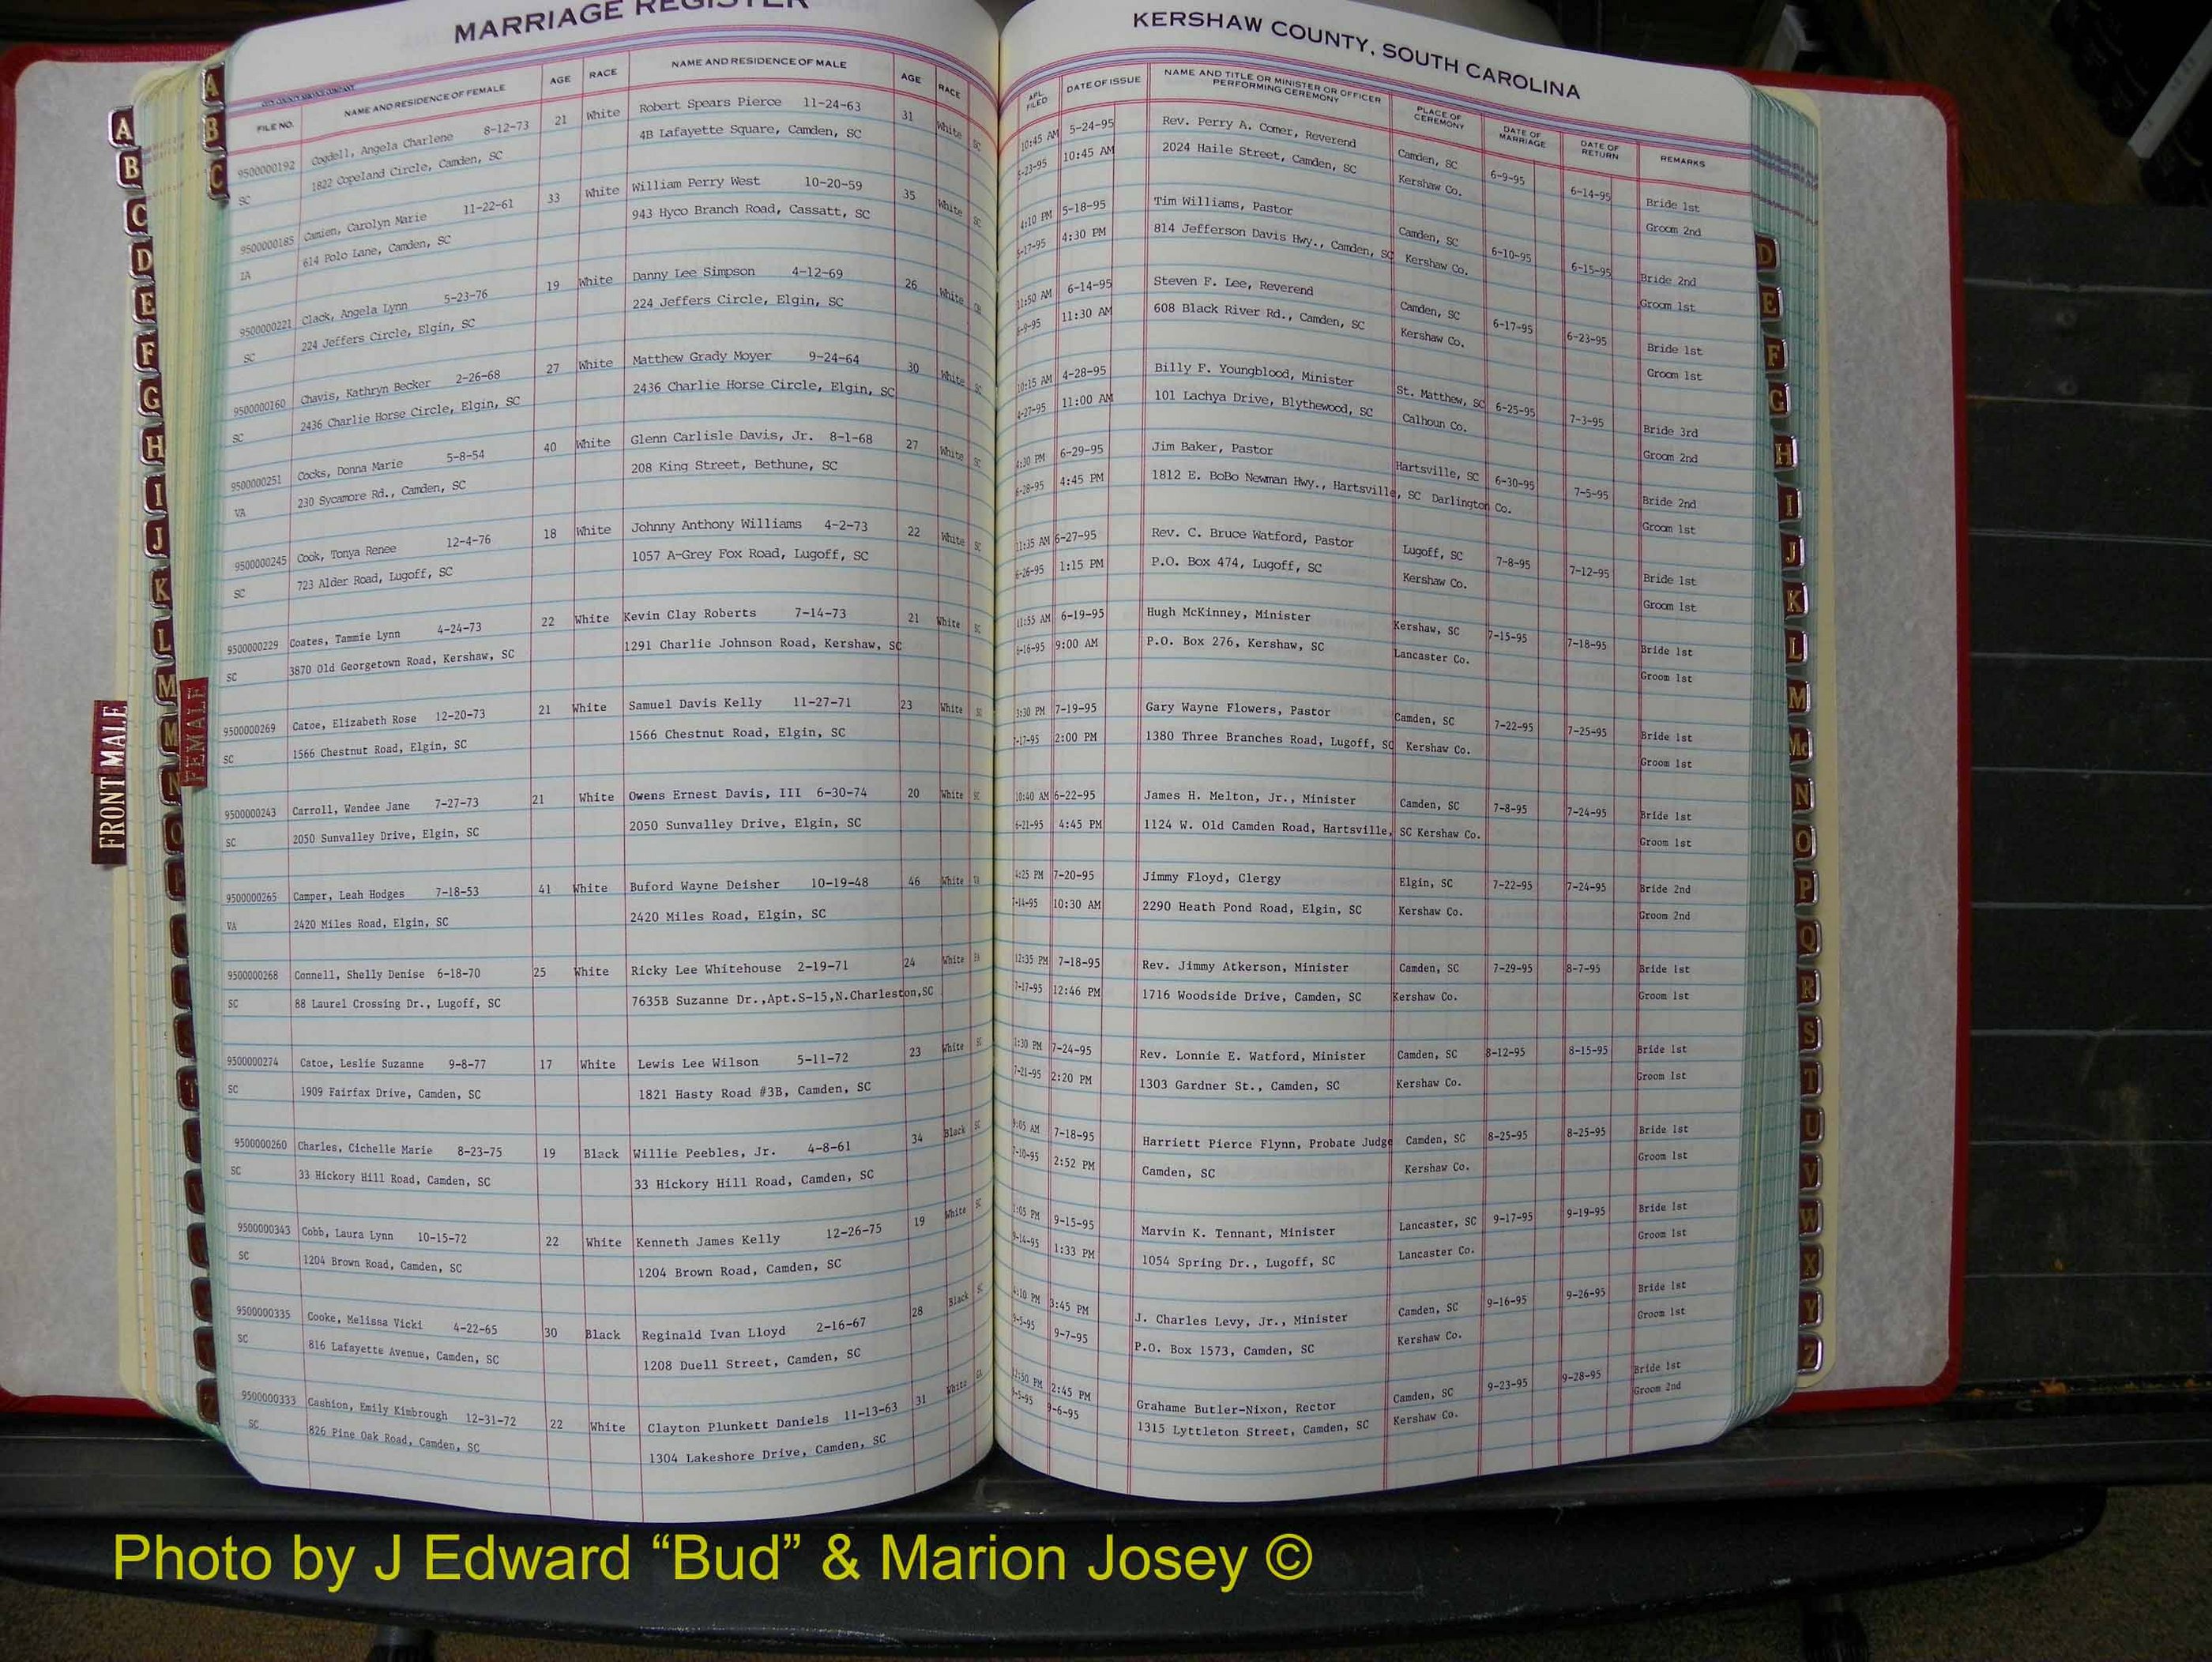 MARRIAGE REGISTER
KERSHAW COUNTY, SOUTH CAROLINA
FILE NO. NAME AND RESIDENCE OF FEMALE AGE RACE NAME AND RESIDENCE OF MALE AGE RACE APL. FILED DATE OF ISSUE NAME AND TITLE OR MINISTER OR OFFICER PERFORMING CEREMONY PLACE OF CEREMONY DATE OF MARRIAGE DATE OF RETURN REMARKS
9500000192 Cogdell, Angela Charlene 8-12-73 21 White Robert Spears Pierce 11-24-63 31 White SC 10:45 AM 5-24-95 Rev. Perry A. Comer, Reverend Camden, SC 6-9-95 6-14-95 Bride 1st
SC 1822 Copeland Circle, Camden, SC 4B Lafayette Square, Camden, SC 5-23-95 10:45 AM 2024 Haile Street, Camden, SC Kershaw Co. Groom 2nd
9500000185 Camien, Carolyn Marie 11-22-61 33 White William Perry West 10-20-59 35 White SC 4:10 PM 5-18-95 Tim Williams, Pastor Camden, SC 6-10-95 6-15-95 Bride 2nd
IA 614 Polo Lane, Camden, SC 943 Hyco Branch Road, Cassatt, SC 5-17-95 4:30 PM 814 Jefferson Davis Hwy., Camden, SC Kershaw Co. Groom 1st
9500000221 Clack, Angela Lynn 5-23-76 19 White Danny Lee Simpson 4-12-69 26 White 11:50 AM 6-14-95 Steven F. Lee, Reverend Camden, SC 6-17-95 6-23-95 Bride 1st
SC 224 Jeffers Circle, Elgin, SC 224 Jeffers Circle, Elgin, SC 6-9-95 11:30 AM 608 Black River Rd., Camden, SC Kershaw Co. Groom 1st
9500000160 Chavis, Kathryn Becker 2-26-68 27 White Matthew Grady Moyer 9-24-64 30 White SC 10:15 AM 4-28-95 Billy F. Youngblood, Minister St. Matthew, SC 6-25-95 7-3-95 Bride 3rd
SC 2436 Charlie Horse Circle, Elgin, SC 2436 Charlie Horse Circle, Elgin, SC 4-27-95 11:00 AM 101 Lachya Drive, Blythewood, SC Calhoun Co. Groom 2nd
9500000251 Cocks, Donna Marie 5-8-54 40 White Glenn Carlisle Davis, Jr. 8-1-68 27 White SC 4:30 PM 6-29-95 Jim Baker, Pastor Hartsville, SC 6-30-95 7-5-95 Bride 2nd
VA 230 Sycamore Rd., Camden, SC 208 King Street, Bethune, SC 6-28-95 4:45 PM 1812 E. BoBo Newman Hwy., Hartsville, SC Darlington Co. Groom 1st
9500000245 Cook, Tonya Renee 12-4-76 18 White Johnny Anthony Williams 4-2-73 22 White SC 11:35 AM 6-27-95 Rev. C. Bruce Watford, Pastor Lugoff, SC 7-8-95 7-12-95 Bride 1st
SC 723 Alder Road, Lugoff, SC 1057 A-Grey Fox Road, Lugoff, SC 6-26-95 1:15 PM P.O. Box 474, Lugoff, SC Kershaw Co. Groom 1st
9500000229 Coates, Tammie Lynn 4-24-73 22 White Kevin Clay Roberts 7-14-73 21 White SC 11:55 AM 6-19-95 Hugh McKinney, Minister Kershaw, SC 7-15-95 7-18-95 Bride 1st
SC 3870 Old Georgetown Road, Kershaw, SC 1291 Charlie Johnson Road, Kershaw, SC 6-16-95 9:00 AM P.O. Box 276, Kershaw, SC Lancaster Co. Groom 1st
9500000269 Catoe, Elizabeth Rose 12-20-73 21 White Samuel Davis Kelly 11-27-71 23 White SC 3:30 PM 7-19-95 Gary Wayne Flowers, Pastor Camden, SC 7-22-95 7-25-95 Bride 1st
SC 1566 Chestnut Road, Elgin, SC 1566 Chestnut Road, Elgin, SC 7-17-95 2:00 PM 1380 Three Branches Road, Lugoff, SC Kershaw Co. Groom 1st
9500000243 Carroll, Wendee Jane 7-27-73 21 White Owens Ernest Davis, III 6-30-74 20 White SC 10:40 AM 6-22-95 James H. Melton, Jr., Minister Camden, SC 7-8-95 7-24-95 Bride 1st
SC 2050 Sunvalley Drive, Elgin, SC 2050 Sunvalley Drive, Elgin, SC 6-21-95 4:45 PM 1124 W. Old Camden Road, Hartsville, SC Kershaw Co. Groom 1st
9500000265 Camper, Leah Hodges 7-18-53 41 White Buford Wayne Deisher 10-19-48 46 White VA 4:25 PM 7-20-95 Jimmy Floyd, Clergy Elgin, SC 7-22-95 7-24-95 Bride 2nd
VA 2420 Miles Road, Elgin, SC 2420 Miles Road, Elgin, SC 7-14-95 10:30 AM 2290 Heath Pond Road, Elgin, SC Kershaw Co. Groom 2nd
9500000268 Connell, Shelly Denise 6-18-70 25 White Ricky Lee Whitehouse 2-19-71 24 White 12:35 PM 7-18-95 Rev. Jimmy Atkerson, Minister Camden, SC 7-29-95 8-7-95 Bride 1st
SC 88 Laurel Crossing Dr., Lugoff, SC 7635B Suzanne Dr.,Apt.S-15,N.Charleston,SC 7-17-95 12:46 PM 1716 Woodside Drive, Camden, SC Kershaw Co. Groom 1st
9500000274 Catoe, Leslie Suzanne 9-8-77 17 White Lewis Lee Wilson 5-11-72 23 White SC 1:30 PM 7-24-95 Rev. Lonnie E. Watford, Minister Camden, SC 8-12-95 8-15-95 Bride 1st
SC 1909 Fairfax Drive, Camden, SC 1821 Hasty Road #3B, Camden, SC 7-21-95 2:20 PM 1303 Gardner St., Camden, SC Kershaw Co. Groom 1st
9500000260 Charles, Cichelle Marie 8-23-75 19 Black Willie Peebles, Jr. 4-8-61 34 Black SC 9:05 AM 7-18-95 Harriett Pierce Flynn, Probate Judge Camden, SC 8-25-95 8-25-95 Bride 1st
SC 33 Hickory Hill Road, Camden, SC 33 Hickory Hill Road, Camden, SC 7-10-95 2:52 PM Camden, SC Kershaw Co. Groom 1st
9500000343 Cobb, Laura Lynn 10-15-72 22 White Kenneth James Kelly 12-26-75 19 White SC 1:05 PM 9-15-95 Marvin K. Tennant, Minister Lancaster, SC 9-17-95 9-19-95 Bride 1st
SC 1204 Brown Road, Camden, SC 1204 Brown Road, Camden, SC 9-14-95 1:33 PM 1054 Spring Dr., Lugoff, SC Lancaster Co. Groom 1st
9500000335 Cooke, Melissa Vicki 4-22-65 30 Black Reginald Ivan Lloyd 2-16-67 28 Black SC 4:10 PM 3:45 PM J. Charles Levy, Jr., Minister Camden, SC 9-16-95 9-26-95 Bride 1st
SC 816 Lafayette Avenue, Camden, SC 1208 Duell Street, Camden, SC 9-5-95 9-7-95 P.O. Box 1573, Camden, SC Kershaw Co. Groom 1st
9500000333 Cashion, Emily Kimbrough 12-31-72 22 White Clayton Plunkett Daniels 11-13-63 31 White 12:50 PM 2:45 PM Grahame Butler-Nixon, Rector Camden, SC 9-23-95 9-28-95 Bride 1st
SC 826 Pine Oak Road, Camden, SC 1304 Lakeshore Drive, Camden, SC 9-5-95 9-6-95 1315 Lyttleton Street, Camden, SC Kershaw Co. Groom 2nd
A
B
C
D
E
F
G
H
I
J
K
L
M
N
O
P
A
B
C
FRONT MALE
FEMALE
D
E
F
G
H
I
J
K
L
M
Mc
N
O
P
Q
R
S
T
U
V
W
X
Y
Z
Photo by J Edward “Bud” & Marion Josey ©